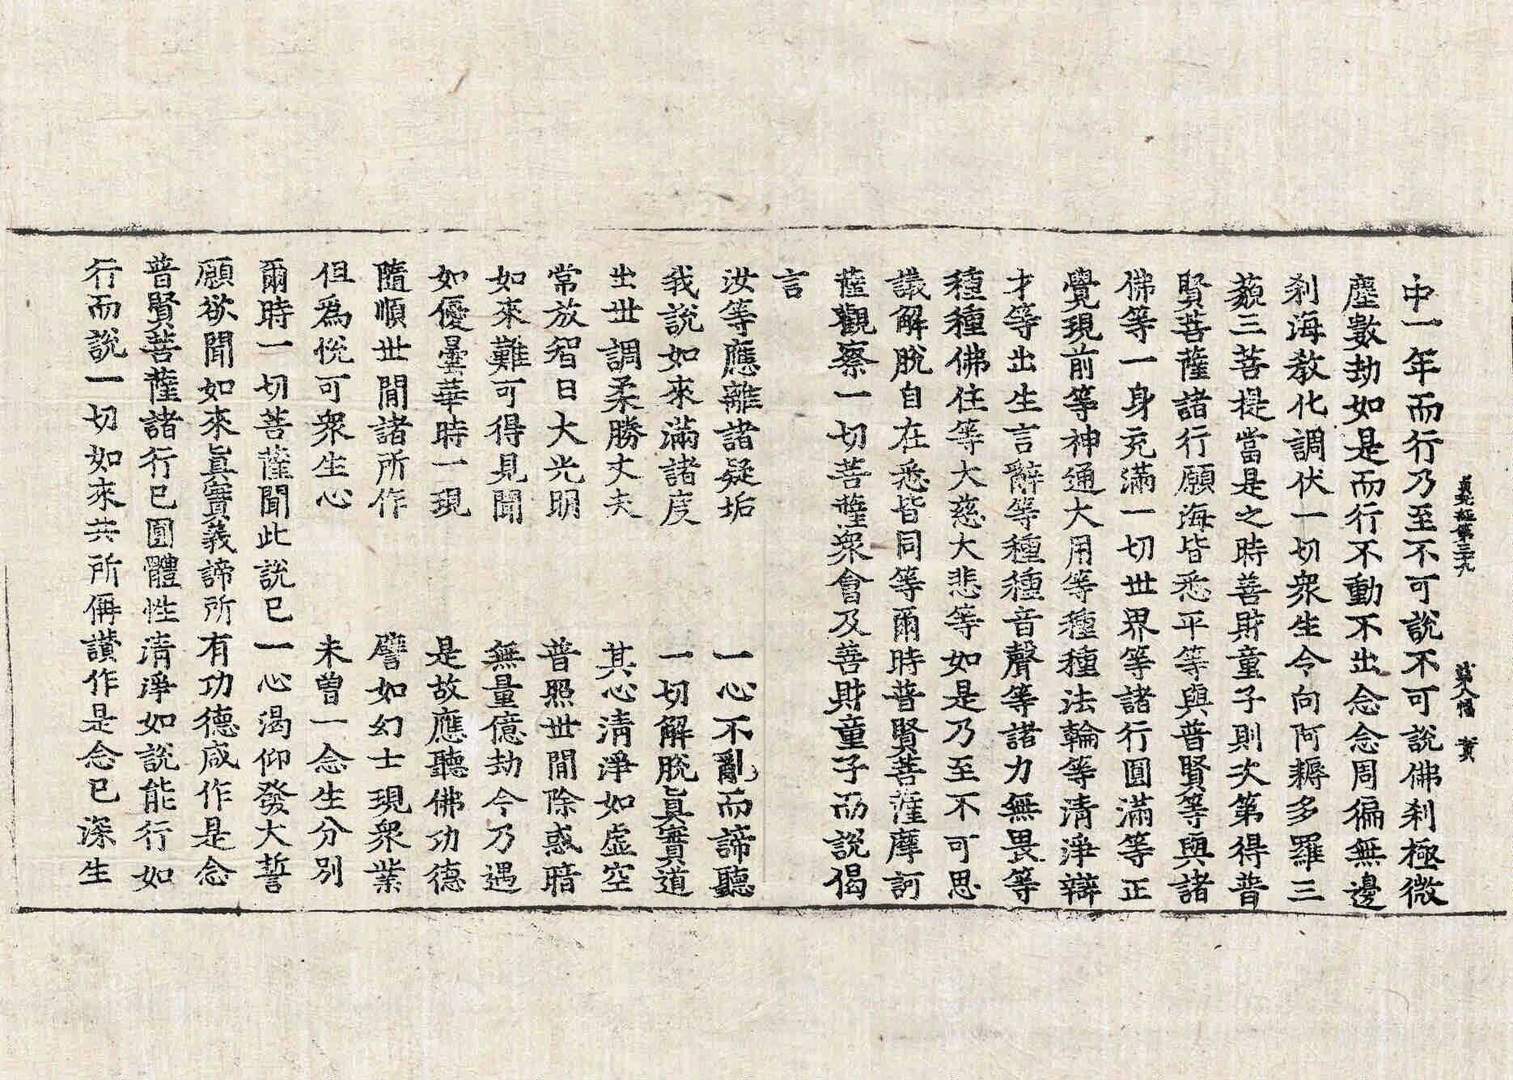 貞元經第三十九 第八幅 實
中一年而行乃至不可說不可說佛刹極微
塵數劫如是而行不動不出念念周徧無邊
刹海教化調伏一切衆生令向阿耨多羅三
藐三菩提當是之時善財童子則次第得普
賢菩薩諸行願海皆悉平等與普賢等與諸
佛等一身充滿一切世界等諸行圓滿等正
覺現前等神通大用等種種法輪等清淨辯
才等出生言辭等種種音聲等諸力無畏等
種種佛住等大慈大悲等如是乃至不可思
議解脫自在悉皆同等爾時普賢菩薩摩訶
薩觀察一切菩薩衆會及善財童子而說偈
言
汝等應離諸疑垢 一心不亂而諦聽
我說如來滿諸度 一切解脫眞實道
出世調柔勝丈夫 其心清淨如虛空
常放智日大光明 普照世間除惑暗
如來難可得見聞 無量億劫今乃遇
如優曇華時一現 是故應聽佛功德
隨順世間諸所作 譬如幻士現衆業
但爲悅可衆生心 未曾一念生分別
爾時一切菩薩聞此說已一心渴仰發大誓
願欲聞如來眞實義諦所有功德咸作是念
普賢菩薩諸行已圓體性清淨如說能行如
行而說一切如來共所偁讃作是念已深生